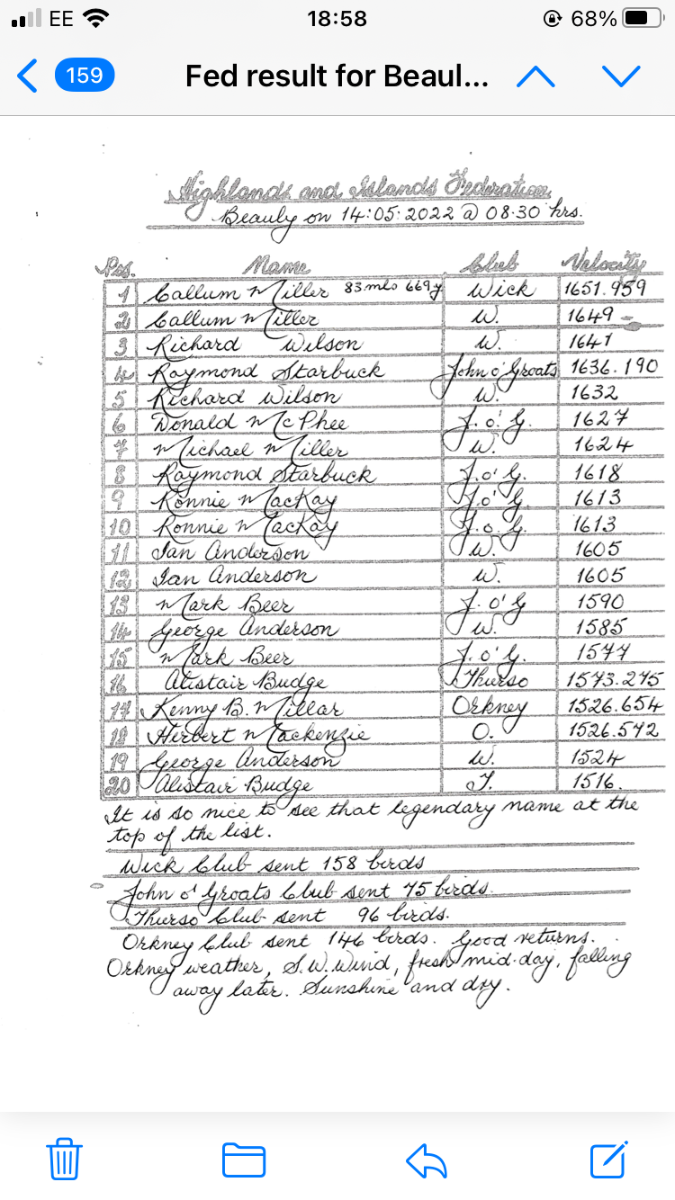 EE 18:58 68%
159 Fed result for Beaul...
Highlands and Islands Federation
Beauly on 14:05:2022 @ 08.30 hrs.
Pos. Name Club Velocity
1 Callum Miller 83 mls 669y Wick 1651.959
2 Callum Miller W. 1649
3 Richard Wilson W. 1641
4 Raymond Starbuck John o' Groats 1636.190
5 Richard Wilson W. 1632
6 Donald McPhee J.o'G. 1627
7 Michael Miller W. 1624
8 Raymond Starbuck J.o'G. 1618
9 Ronnie MacKay J.o'G. 1613
10 Ronnie MacKay J.o.G. 1613
11 Ian Anderson W. 1605
12 Ian Anderson W. 1605
13 Mark Beer J.o'G 1590
14 George Anderson W. 1585
15 Mark Beer J.o'G. 1577
16 Alistair Budge Thurso 1573.275
17 Kenny B. Millar Orkney 1526.654
18 Herbert Mackenzie O. 1526.572
19 George Anderson W. 1524
20 Alistair Budge T. 1516.
It is so nice to see that legendary name at the
top of the list.
Wick Club sent 158 birds
John o' Groats Club sent 75 birds.
Thurso Club sent 96 birds.
Orkney Club sent 146 birds. Good returns.
Orkney weather, S.W. Wind, fresh mid-day, falling
away later. Sunshine and dry.